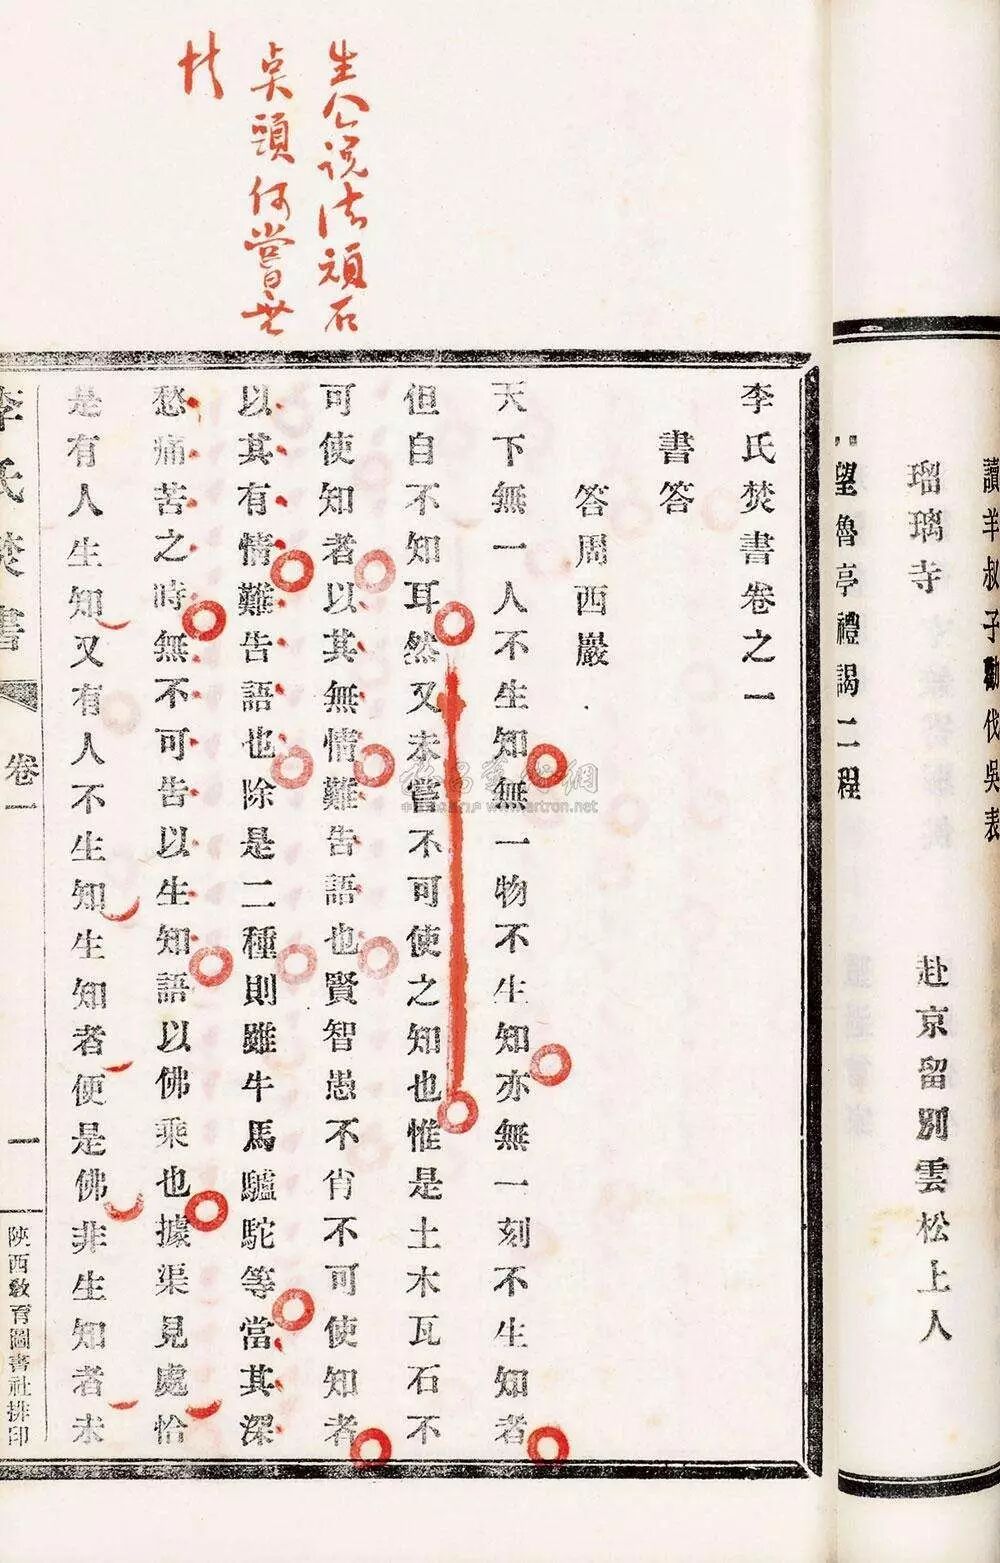 讀羊叔子勸伐吳表
瑠璃寺
赴京留別雲松上人
望魯亭禮謁二程
生公说法頑石
点頭何嘗無
李氏焚書卷之一
書答
答周西巖
天下無一人不生知無一物不生知亦無一刻不生知者
但自不知耳然又未嘗不可使之知也惟是土木瓦石不
可使知者以其無情難告語也賢智愚不肖不可使知者
以其有情難告語也除是二種則雖牛馬驢駝等當其深
愁痛苦之時無不可告以生知語以佛乘也據渠見處恰
是有人生知又有人不生知生知者便是佛非生知者未
李氏焚書
卷一
一
陝西教育圖書社排印
www.artron.net